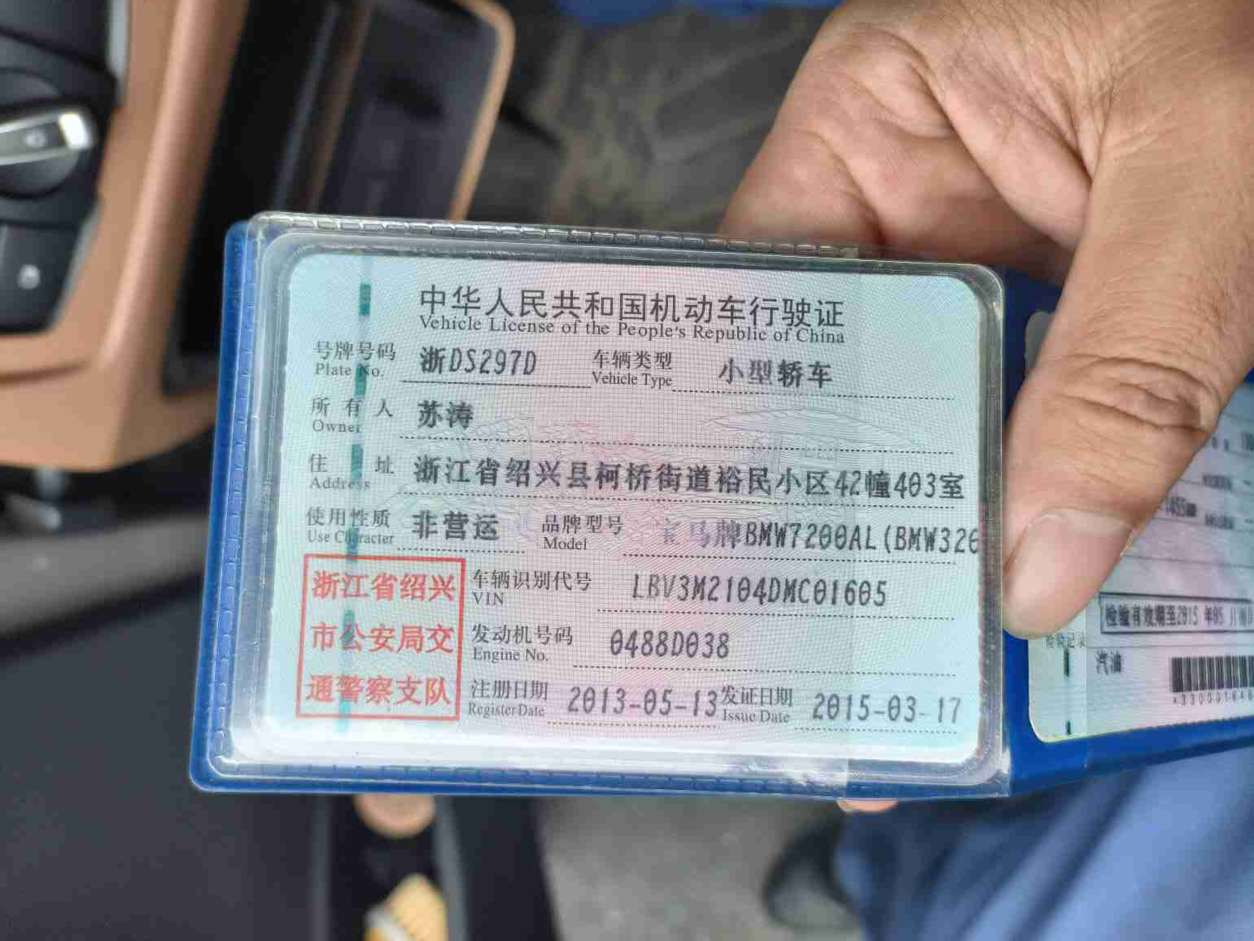 中华人民共和国机动车行驶证
Vehicle License of the People's Republic of China
号牌号码 浙DS297D 车辆类型 小型轿车
Plate No. Vehicle Type
所有人 苏涛
Owner
住址 浙江省绍兴县柯桥街道裕民小区42幢403室
Address
使用性质 非营运 品牌型号 宝马牌BMW7200AL(BMW320
Use Character Model
浙江省绍兴
市公安局交
通警察支队
车辆识别代号 LBV3M2104DMC01605
VIN
发动机号码 0488D038
Engine No.
注册日期 2013-05-13 发证日期 2015-03-17
Register Date Issue Date
检验有效期至2015年05月
检验记录
汽油